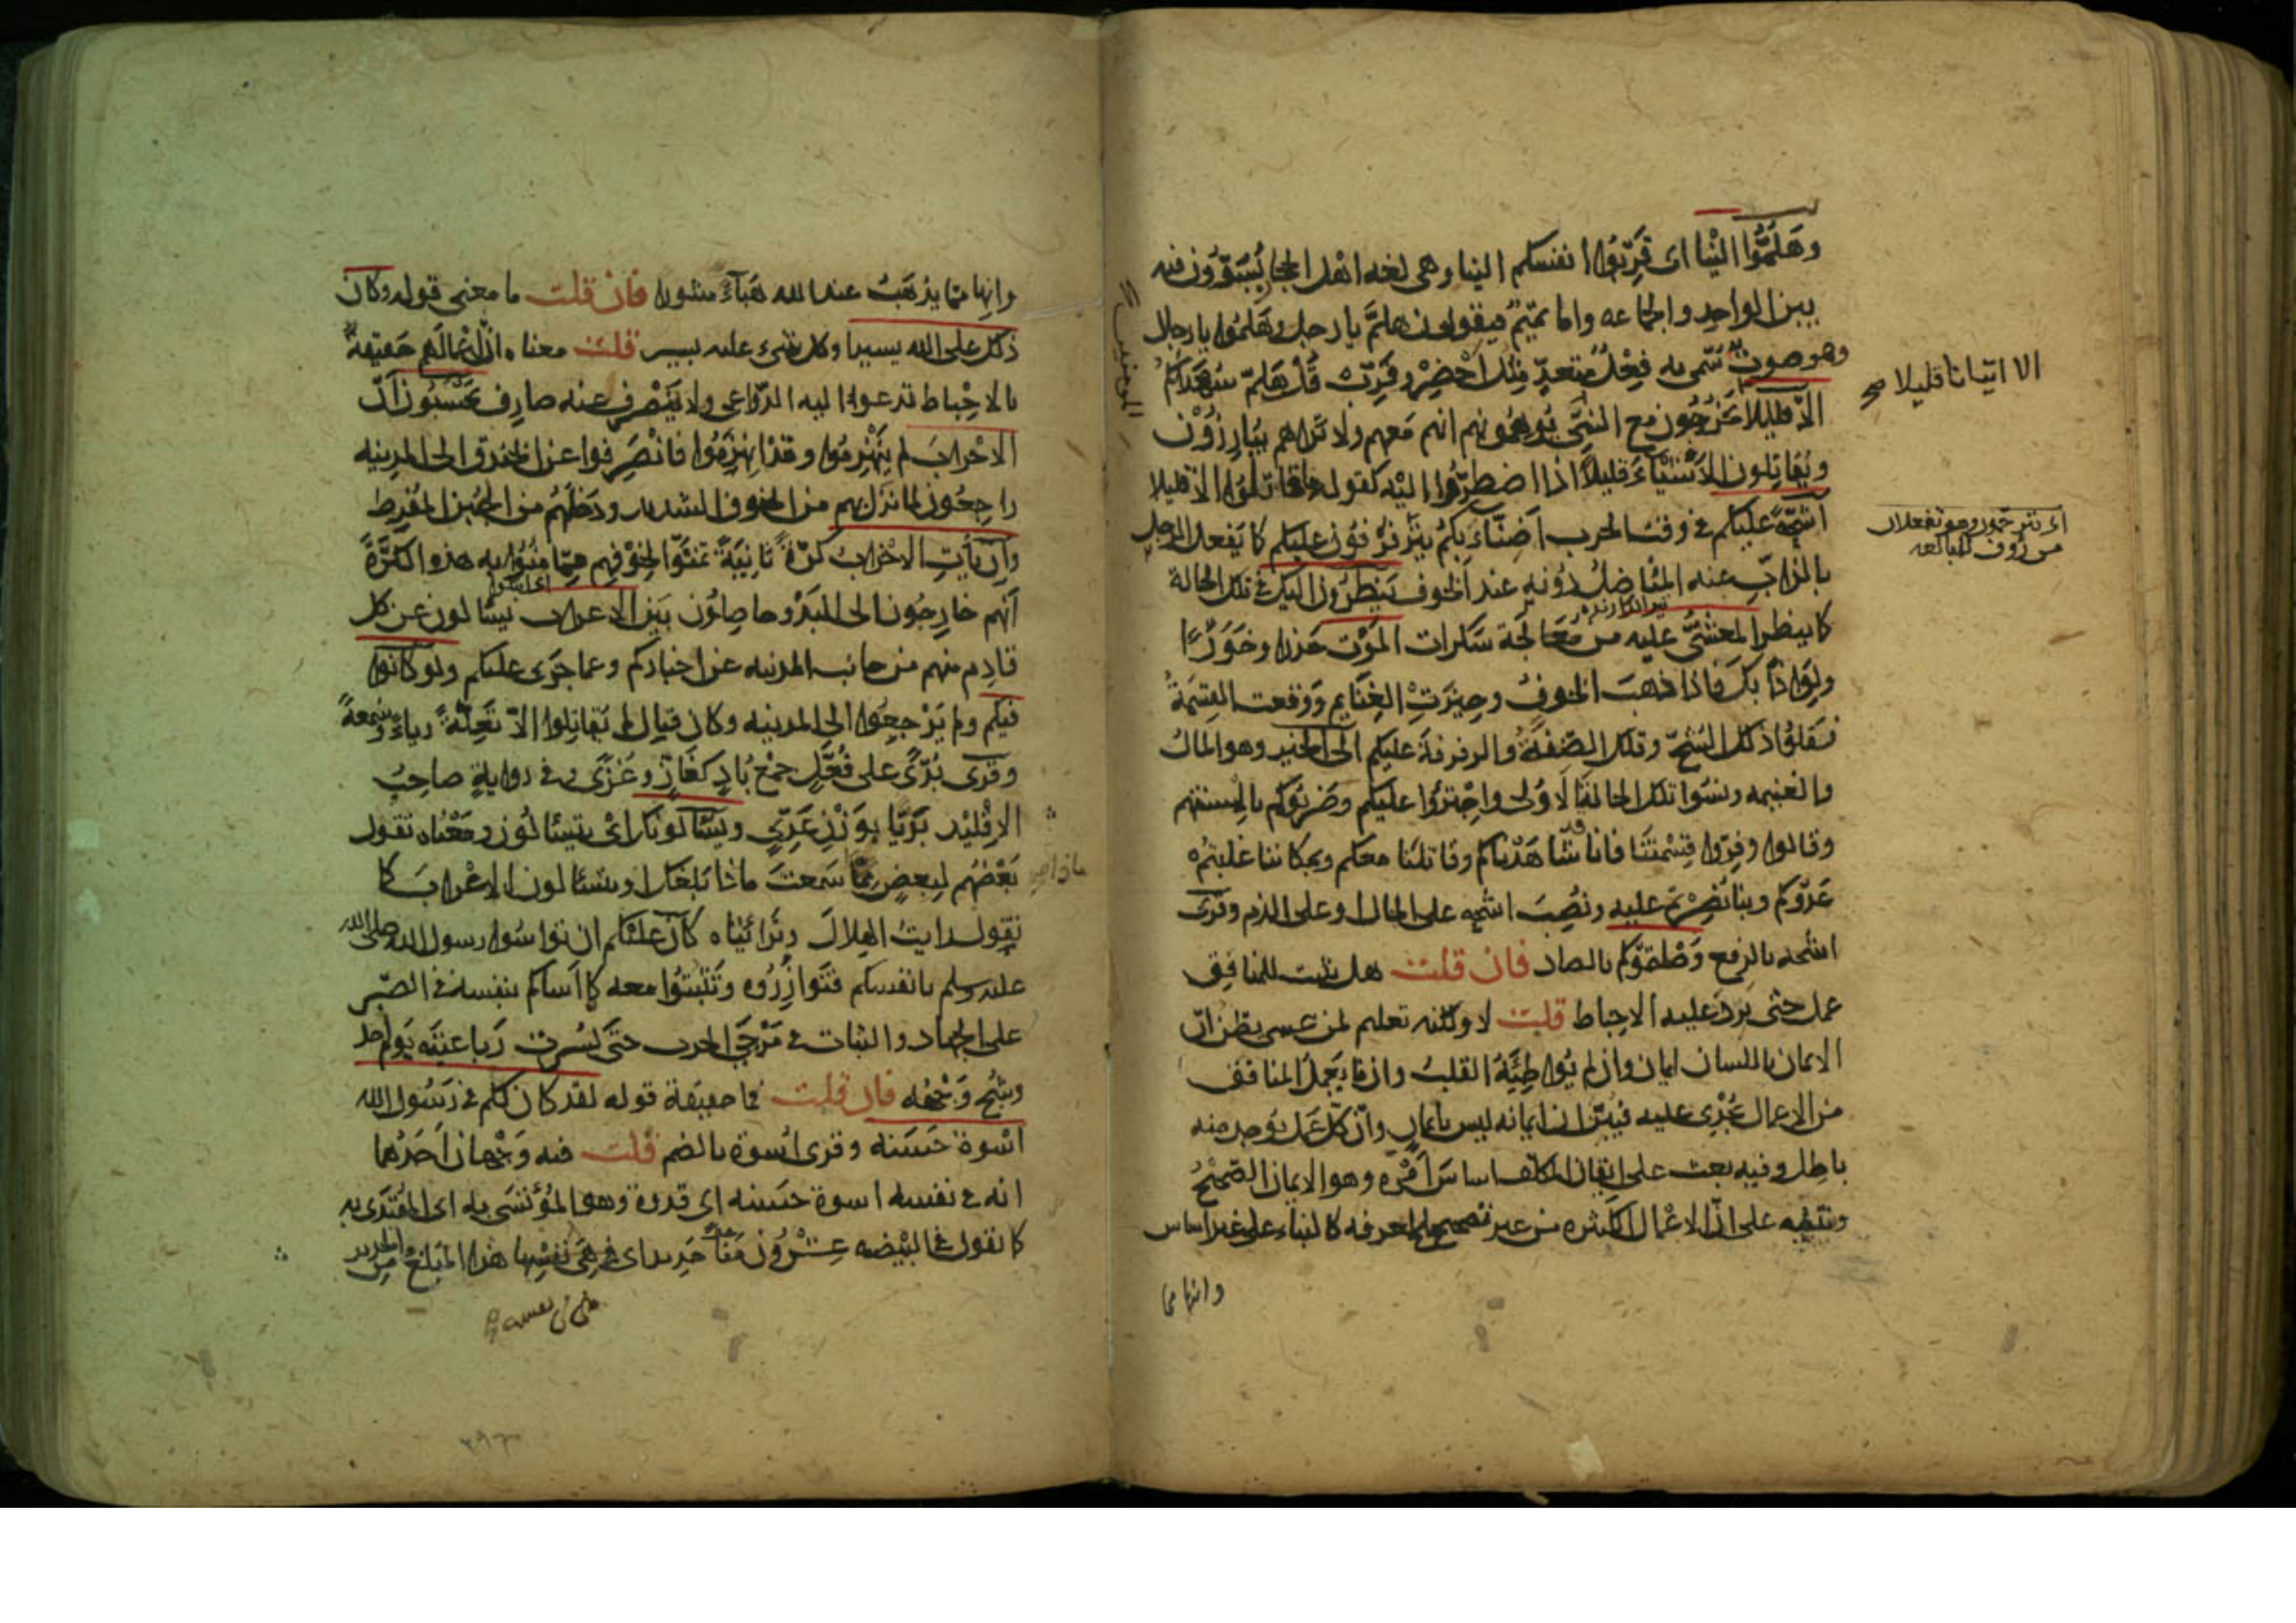 وهَلُمُّوا الينا اى قَرِّبُوا انفسكم الينا وهى لغه اهل الحجاز يُسَوُّون فيه
بين الواحد والجماعه واما تميم فيقولون هلمَّ يا رجل وهَلُمُّوا يا رجال
وهو صوت سمى به فِعْل متعدٍّ مثل احْضِرْ وقَرِّب قل هلمّ شهداءكم
الا قليلا يَخرُجون مع المؤمنين يُوهِمُونهم انهم مَعهم ولا تراهم يُبَارِزُون
الا اتيانا قليلا صح
ويُقاتِلون الا شَيْاءً قليلاً اذا اضطرّوا اليه كقوله ما قاتلوا الا قليلا
اشحّةً عليكم فى وقت الحرب اضنّاء بكم يترفرفون عليكم كما يَفعل الرجل
بالذابّ عنه المناضل دُونه عند الخوف ينظرون اليك فى تلك الحالة
كما ينظر المغشىّ عليه من مُعالجة سَكرات الموت حذرا وخَوَرًا
ولِواذًا بك فاذا ذهبَ الخوفُ وحِيزَتِ الغنايم ووقعت القِسْمَةُ
نقلوا ذلك الشحّ وتلك الضِّنَّةُ والرفرفةَ عليكم الى الخير وهو المال
والغنيمه ونسوا تلك الحالة الاولى واجترَؤا عليكم وضربوكم بالسنتهم
وقالوا وفِّروا قِسْمَتَنا فانا قد شاهَدْناكم وقاتلنا معكم وبمكاننا غلبتم
عَدُوّكم وبنا نُصِرْتم عليه ونُصِبَ اشحه على الحال او على الذم وقرئ
اشحه بالرفع وصَلَقُوكم بالصاد فان قلت هل يثبت للمنافق
عمل حتى يرد عليه الاحباط قلت لا ولكنه تعليم لمن عسى يظن انّ
الايمان باللسان ايمان وان لم يُواطِئْهُ القلب وان ما يعمل المنافق
من الاعمال يُجْزى عليه فبيّن ان ايمانه ليس بايمان وانّ كل عمل يوجد منه
باطل وفيه بعث على اتقان المكلف اساس امره وهو الايمان الصحيحُ
وتنبيه على انّ الاعمال الكثيره من غير تصحيح المعرفه كالبناء على غير اساس
وانها مما
وانها مما يذهبُ عند الله هَباءً منثورا فان قلت ما معنى قوله وكان
ذلك على الله يسيرا وكل شىء عليه يسير قلت معناه انّ اعمالهم حقيقة
بالاحباط تدعوا اليه الدّواعى ولا يَصْرِف عنه صارف يحسَبُون انّ
الاحزاب لم يَنْهزِموا وقد انهزَمُوا فانصَرَفوا عن الخندق الى المدينه
راجعون لما نزل بهم من الخوف الشديد ودخلهُم من الجُبْن المُفرِط
وان يأتِ الاحزاب كرّةً ثانيةً تمَنَّوْا لخَوْفِهم مِمّا مُنُوا به هذه الكرَّةَ
انّهم خارجُون الى البَدْو حاصِلون بَيْن الاعراب يسئالون عن كل
قادِم منهم من جانب المدينه عن اخباركم وعما جَرَى عليكم ولو كانوا
فيكم ولم يَرْجِعُوا الى المدينه وكان قِتال لم يُقاتِلوا الاّ تَعِلّةً رياءً وسُمعةً
وقرى بُدًّى على فُعَّلٍ جمْع بُادٍ كغازٍ وغُزًّى وفى رواية صاحب
الاقليد بَدِيّا بِوَزْنِ عَدِيّ ويَسّاءلون اى يتسئالون ومَعْناه يقول
بَعْضُهم لبعض ماذا سَمعت ماذا بَلغك او يتسئالون الاعراب كما
تقول رايتُ الهِلالَ وترائيناه كان عليكم ان تواسوا رسول الله صلى الله
عليه وسلم بانفسكم فتُوازِرُوه وتَثبُتُوا معه كما آساكم بنفسه فى الصّبر
على الجهاد والثبات فى مَرْحَى الحرب حتى كُسِرت رَباعِيَتُه يَوم احد
وشُجّ وَجْهُه فان قلت فما حقيقة قوله لقد كان لكم فى رَسُول الله
اسْوة حَسَنه وقرى اسوة بالضم قلت فيه وَجْهان احدُهما
انه فى نفسه اسوة حسنه اى قدوة وهو المُؤتَسَى به اى المُقتدَى به
كما تقول فى البَيْضه عِشرون مَنًا حَدِيدا اى هِىَ فى نفسِها هذا المبلغ من الحديد